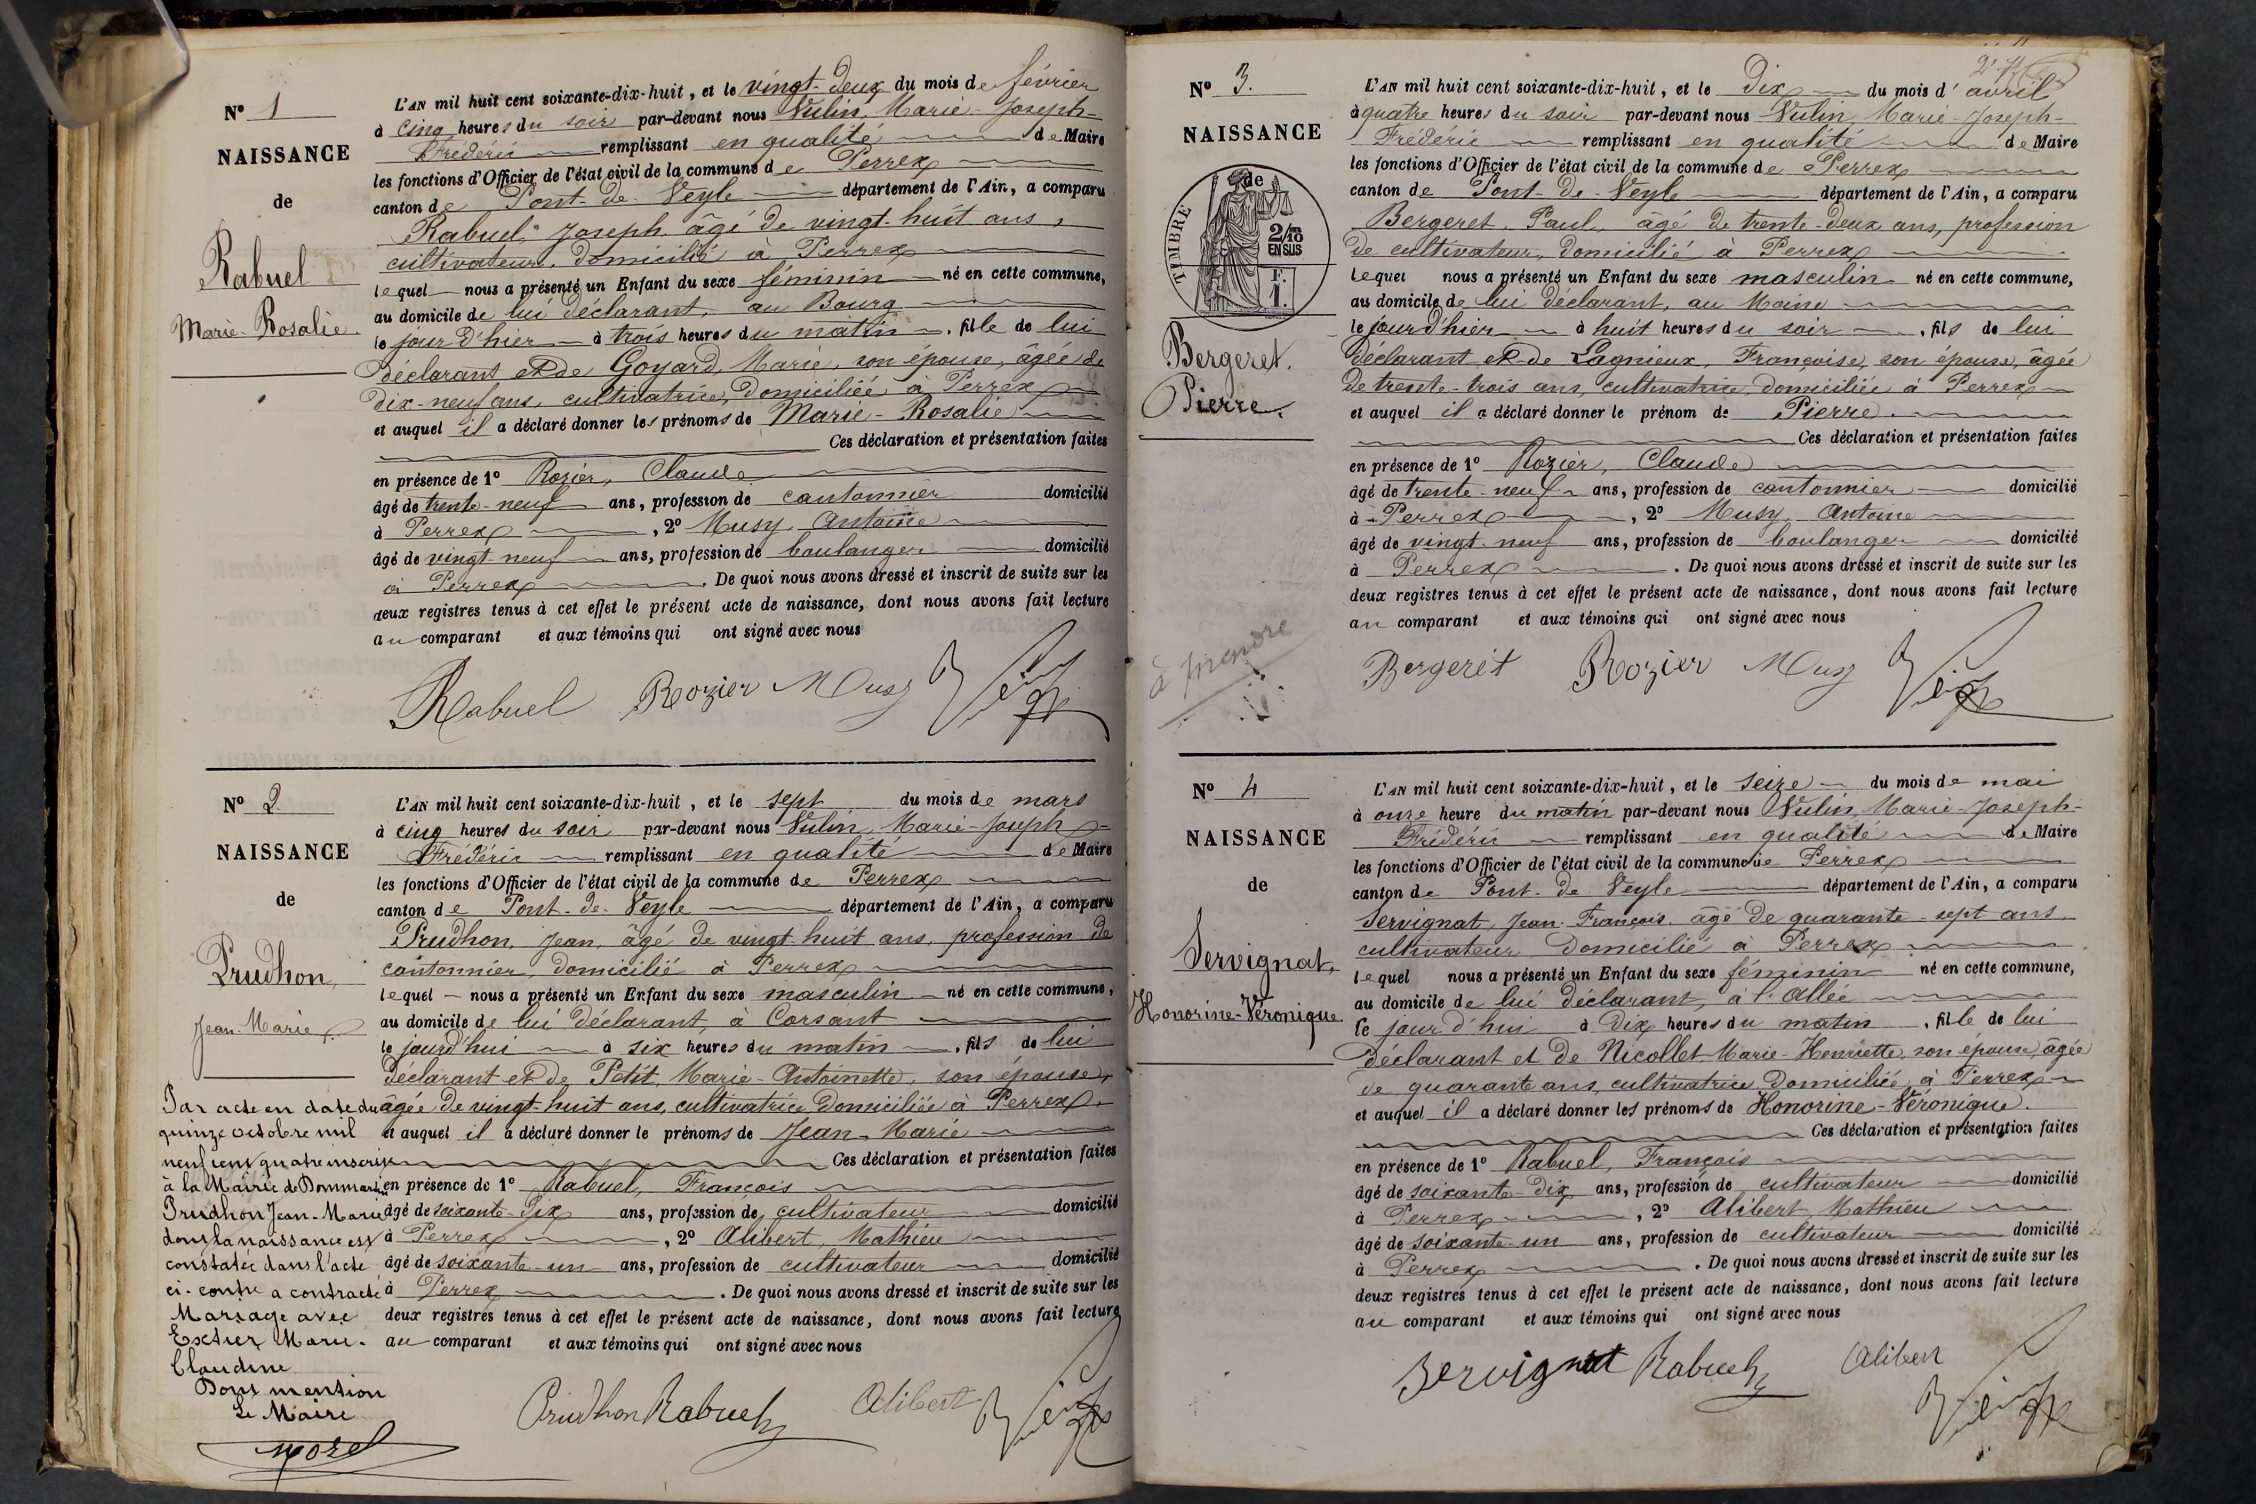 N° 1
NAISSANCE
de
Rabuel
Marie-Rosalie.
L'AN mil huit cent soixante-dix-huit, et le vingt-deux du mois de février
à cinq heures du soir par-devant nous Vulin, Marie-Joseph-
Frédéric remplissant en qualité de Maire
les fonctions d'Officier de l'état civil de la commune de Perrex
canton de Pont-de-Veyle département de l'Ain, a comparu
Rabuel, Joseph âgé de vingt-huit ans,
cultivateur, domicilié à Perrex
lequel nous a présenté un Enfant du sexe féminin né en cette commune,
au domicile de lui déclarant, au Bourg
le jour d'hier à trois heures du matin, fille de lui
déclarant et de Goyard, Marie, son épouse, âgée de
dix-neuf ans, cultivatrice, domiciliée à Perrex
et auquel il a déclaré donner les prénoms de Marie-Rosalie
Ces déclaration et présentation faites
en présence de 1° Rozier, Claude
âgé de trente-neuf ans, profession de cantonnier domicilié
à Perrex, 2° Musy, Antoine
âgé de vingt-neuf ans, profession de boulanger domicilié
à Perrex. De quoi nous avons dressé et inscrit de suite sur les
deux registres tenus à cet effet le présent acte de naissance, dont nous avons fait lecture
au comparant et aux témoins qui ont signé avec nous
Rabuel Rozier Musy
N° 2
NAISSANCE
de
Prudhon,
Jean-Marie
L'AN mil huit cent soixante-dix-huit, et le sept du mois de mars
à cinq heures du soir par-devant nous Vulin, Marie-Joseph-
Frédéric remplissant en qualité de Maire
les fonctions d'Officier de l'état civil de la commune de Perrex
canton de Pont-de-Veyle département de l'Ain, a comparu
Prudhon, Jean, âgé de vingt-huit ans, profession de
cantonnier, domicilié à Perrex
lequel nous a présenté un Enfant du sexe masculin né en cette commune,
au domicile de lui déclarant, à Corsant
le jourd'hui à six heures du matin, fils de lui
déclarant et de Petit, Marie-Antoinette, son épouse,
âgée de vingt-huit ans, cultivatrice domiciliée à Perrex.
et auquel il a déclaré donner le prénoms de Jean-Marie
Ces déclaration et présentation faites
en présence de 1° Rabuel, François
âgé de soixante-dix ans, profession de cultivateur domicilié
à Perrex, 2° Alibert, Mathieu
âgé de soixante-un ans, profession de cultivateur domicilié
à Perrex. De quoi nous avons dressé et inscrit de suite sur les
deux registres tenus à cet effet le présent acte de naissance, dont nous avons fait lecture
au comparant et aux témoins qui ont signé avec nous
Prudhon Rabuel Alibert
Par acte en date du
quinze octobre mil
neuf cent quatre inscrit
à la Mairie de Dommartin
Prudhon Jean-Marie
dont la naissance est
constatée dans l'acte
ci-contre a contracté
Mariage avec
Extier Marie-
Claudine
Dont mention
Le Maire
Morel
N° 3.
NAISSANCE
de
TIMBRE
2/10
EN SUS
F.
1.
Bergeret.
Pierre.
à prendre
L'AN mil huit cent soixante-dix-huit, et le Dix du mois d'avril
à quatre heures du soir par-devant nous Vulin, Marie-Joseph-
Frédéric remplissant en qualité de Maire
les fonctions d'Officier de l'état civil de la commune de Perrex
canton de Pont-de-Veyle département de l'Ain, a comparu
Bergeret, Paul, âgé de trente-deux ans, profession
de cultivateur, domicilié à Perrex
lequel nous a présenté un Enfant du sexe masculin né en cette commune,
au domicile de lui déclarant, au
le jour d'hier à huit heures du soir, fils de lui
déclarant et de Lagnieux, Françoise, son épouse, âgée
de trente-trois ans, cultivatrice, domiciliée à Perrex
et auquel il a déclaré donner le prénom de Pierre.
Ces déclaration et présentation faites
en présence de 1° Rozier, Claude
âgé de trente-neuf ans, profession de cantonnier domicilié
à Perrex, 2° Musy, Antoine
âgé de vingt-neuf ans, profession de boulanger domicilié
à Perrex. De quoi nous avons dressé et inscrit de suite sur les
deux registres tenus à cet effet le présent acte de naissance, dont nous avons fait lecture
au comparant et aux témoins qui ont signé avec nous
Bergeret Rozier Musy
N° 4
NAISSANCE
de
Servignat,
Honorine-Véronique.
L'AN mil huit cent soixante-dix-huit, et le seize du mois de mai
à onze heure du matin par-devant nous Vulin, Marie-Joseph-
Frédéric remplissant en qualité de Maire
les fonctions d'Officier de l'état civil de la commune de Perrex
canton de Pont-de-Veyle département de l'Ain, a comparu
Servignat, Jean-François, âgé de quarante-sept ans,
cultivateur domicilié à Perrex
lequel nous a présenté un Enfant du sexe féminin né en cette commune,
au domicile de lui déclarant, à l'Allée
le jour d'hui à dix heures du matin, fille de lui
déclarant et de Nicollet Marie-Henriette, son épouse, âgée
de quarante ans, cultivatrice domiciliée, à Perrex
et auquel il a déclaré donner les prénoms de Honorine-Véronique.
Ces déclaration et présentation faites
en présence de 1° Rabuel, François
âgé de soixante-dix ans, profession de cultivateur domicilié
à Perrex, 2° Alibert, Mathieu
âgé de soixante-un ans, profession de cultivateur domicilié
à Perrex. De quoi nous avons dressé et inscrit de suite sur les
deux registres tenus à cet effet le présent acte de naissance, dont nous avons fait lecture
au comparant et aux témoins qui ont signé avec nous
Servignat Rabuel Alibert